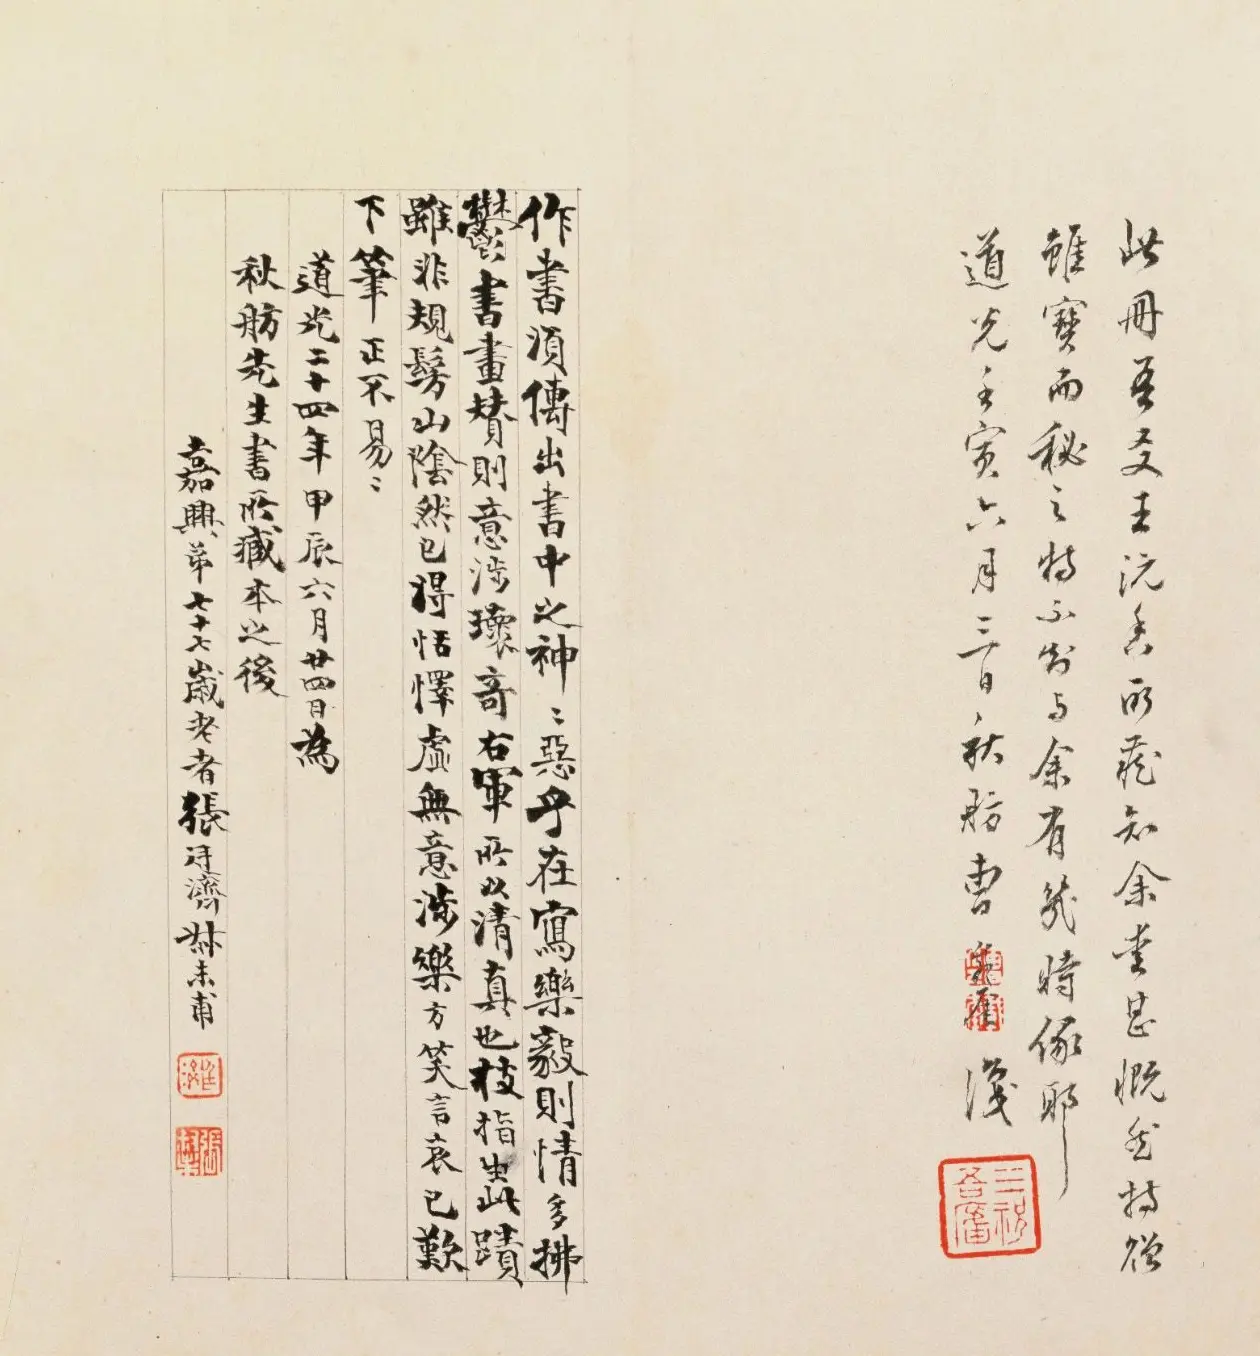 此冊吾友王沅香所藏知余愛甚慨然持贈
雖寶而秘之特不知與余有幾時緣耶
道光壬寅六月三日秋舫曹
識
作書須傳出書中之神〻惡乎在寫樂毅則情多拂
鬱書畫贊則意涉瓌奇右軍所以清真也枝指生此蹟
雖非規髣山陰然已得恬懌虛無意涉樂方笑言哀已歎
下筆正不易〻
道光二十四年甲辰六月廿四日為
秋舫先生書所藏本之後
嘉興弟七十七歲老者張廷濟叔未甫